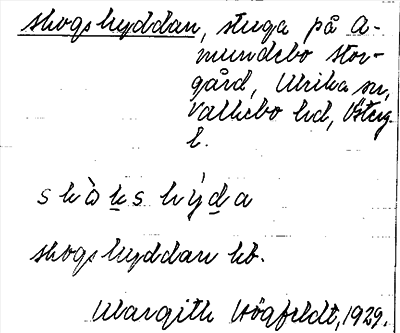 skogshyddan, stuga på A-
mundebo stor-
gård, Ulrika sn,
Valkebo hd, Österg.
l.
skògshýda
skogshyddan hb.
Margith Högfeldt, 1929.